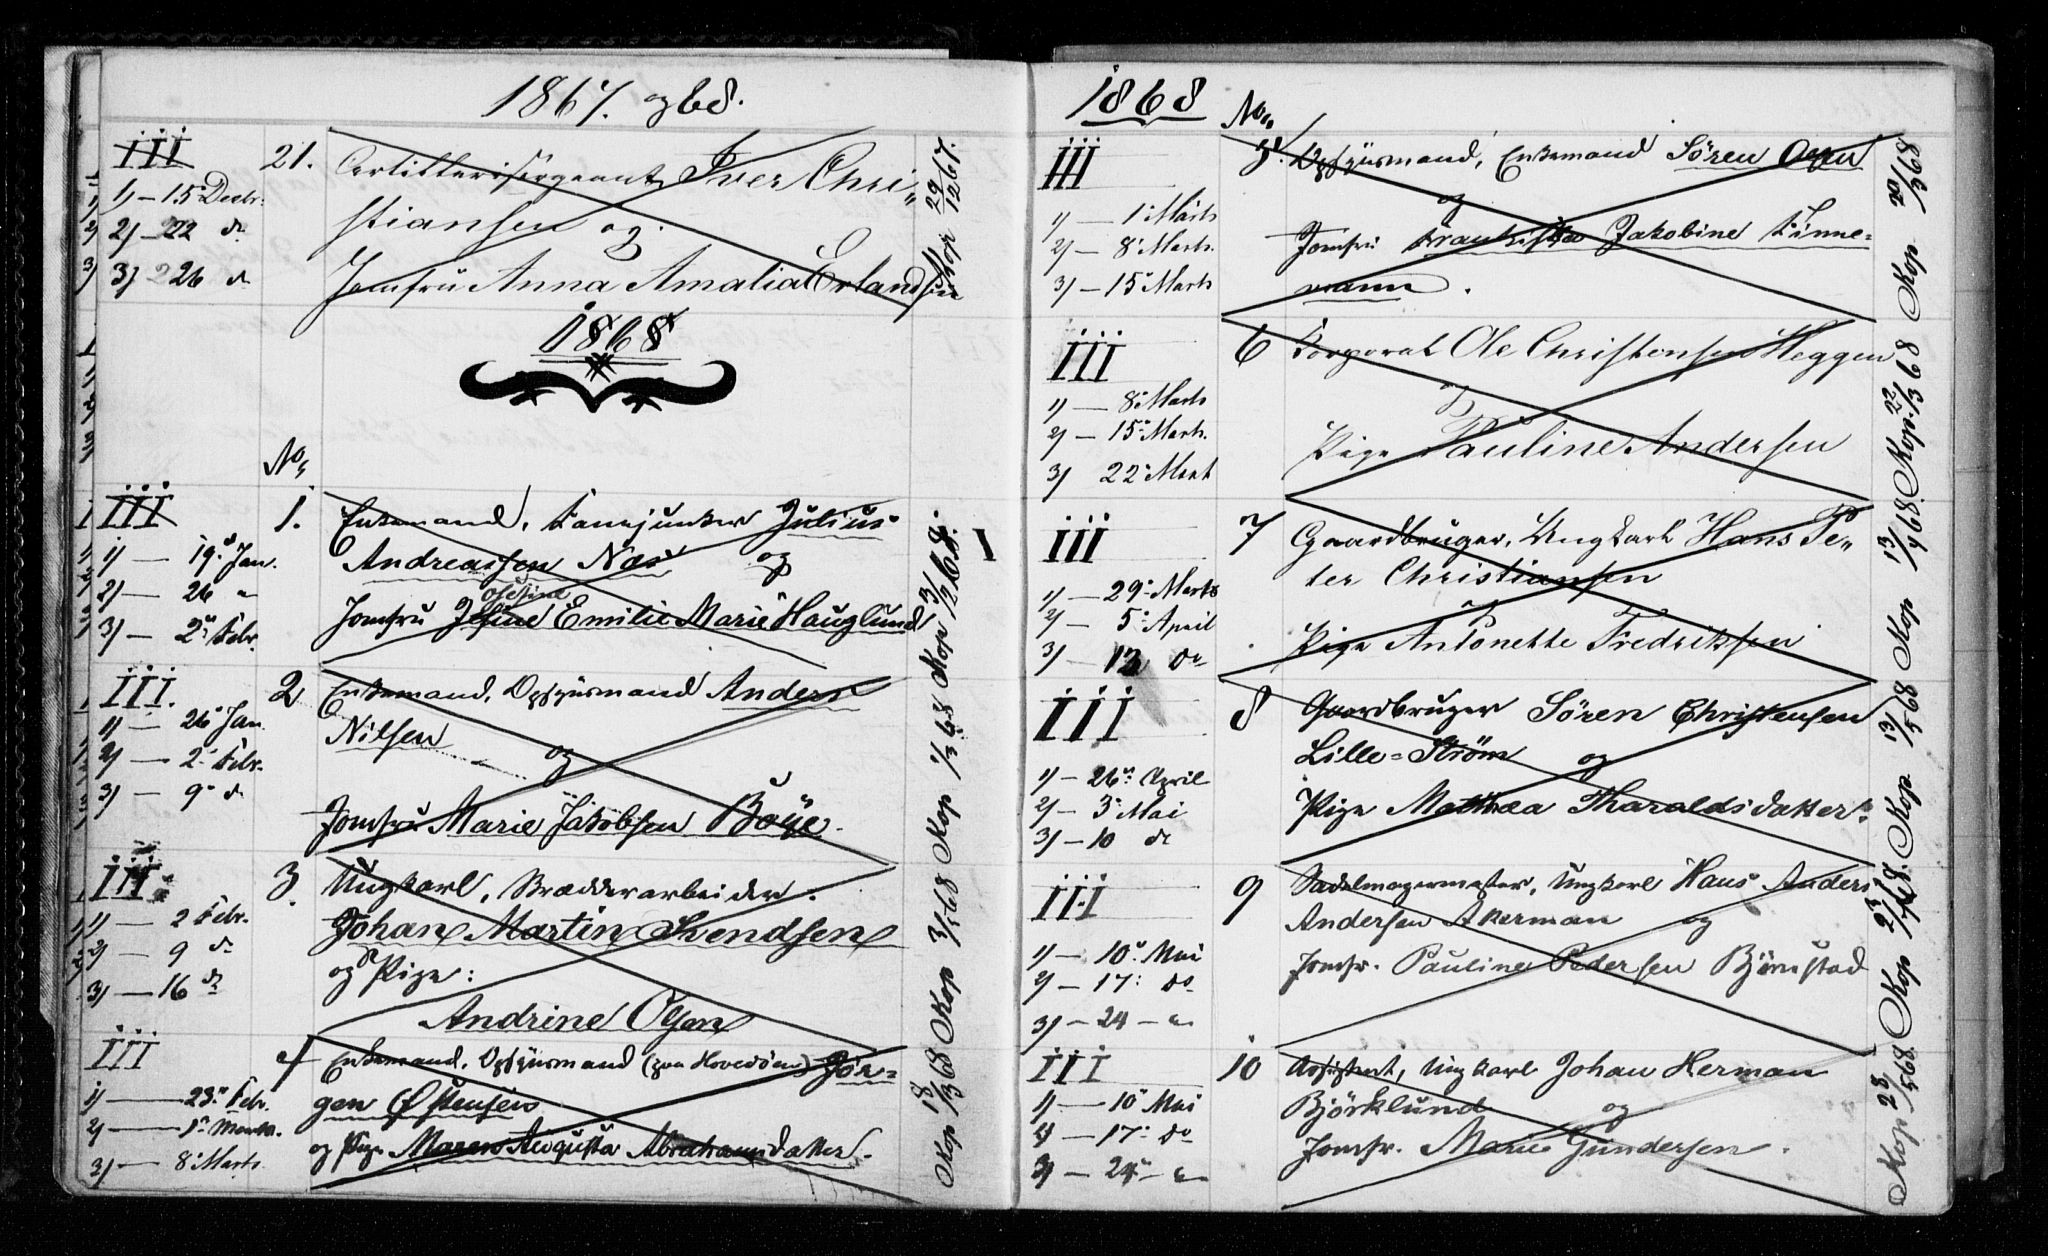 1867. og 68.
III 21. Artillerisergeant Iver Chri„
1) — 15 Decbr. stiansen og
2) — 22 do
3) 26 do Jomfru Anna Amalia Erlandsen
Kop 29/12 67.
1868
No.
III 1. Enkemand, Fanejunker Julius
1) — 19. Jan. Andreassen Næs og
2) — 26 „ Josefine
3) — 2. Febr. Jomfru Jesine Emilie Marie Hauglund
Kop 13/2 68.
III. 2 Enkemand, Opsynsmand Anders
1) — 26 Jan Nilsen
2) — 2 Febr. og
3) — 9 do
Jomfru Marie Jakobsen Böye.
Kop 1/3 68
III. 3. Ungkarl, Bræddearbeider.
1) — 2 Febr. Johan Martin Svendsen
2) — 9 do og Pige:
3) — 16 do
Andrine Olsen
Kop 68
III 4 Enkemand, Opsynsmand (paa Hovedöen) Jör=
1) — 23 Febr. gen Østensen
2) — 1 Marts.
3) — 8 Marts. og Pige Maren Augusta Abrahamsdatter.
Kop 18/3 68
1868
No.
III 5. Opsynsmand, Enkemand Sören Olsen
1) — 1 Marts og
2) — 8 Marts. Jomfru Frantziska Jakobine Tönne=
3) — 15 Marts mann.
Kop 20/3 68
III 6 Korporal Ole Christensen Heggen
1) — 8 Marts
2) — 15 Marts.
3) 22 Mart Pige Pauline Andersen
Kop. 22/3 68
III 7 Gaardbruger, Ungkarl Hans Pe„
ter Christiansen
1) — 29 Marts
2) — 5 April
3) — 12 do Pige Antonette Fredriksen
Kop 13/4 68.
III 8 Gaardbruger Sören Christensen
Lille=Ström og
1) — 26 April
2) — 3 Mai Pige Mathea Tharaldsdatter.
3) — 10 do
Kop 13/5 68
III 9 Sadelmagermester, Ungkarl Hans Anders
Andersen Akerman og
1) — 10 Mai
2) — 17 do Jomfr. Pauline Pedersen Björnstad
3) — 24 — „
Kop
III 10 Assistent, Ungkarl Johan Herman
1) — 10 Mai Björklund og
2) — 17 do
3) — 24 — „ Jomfr. Marie Gundersen.
Kop 28/5 68.